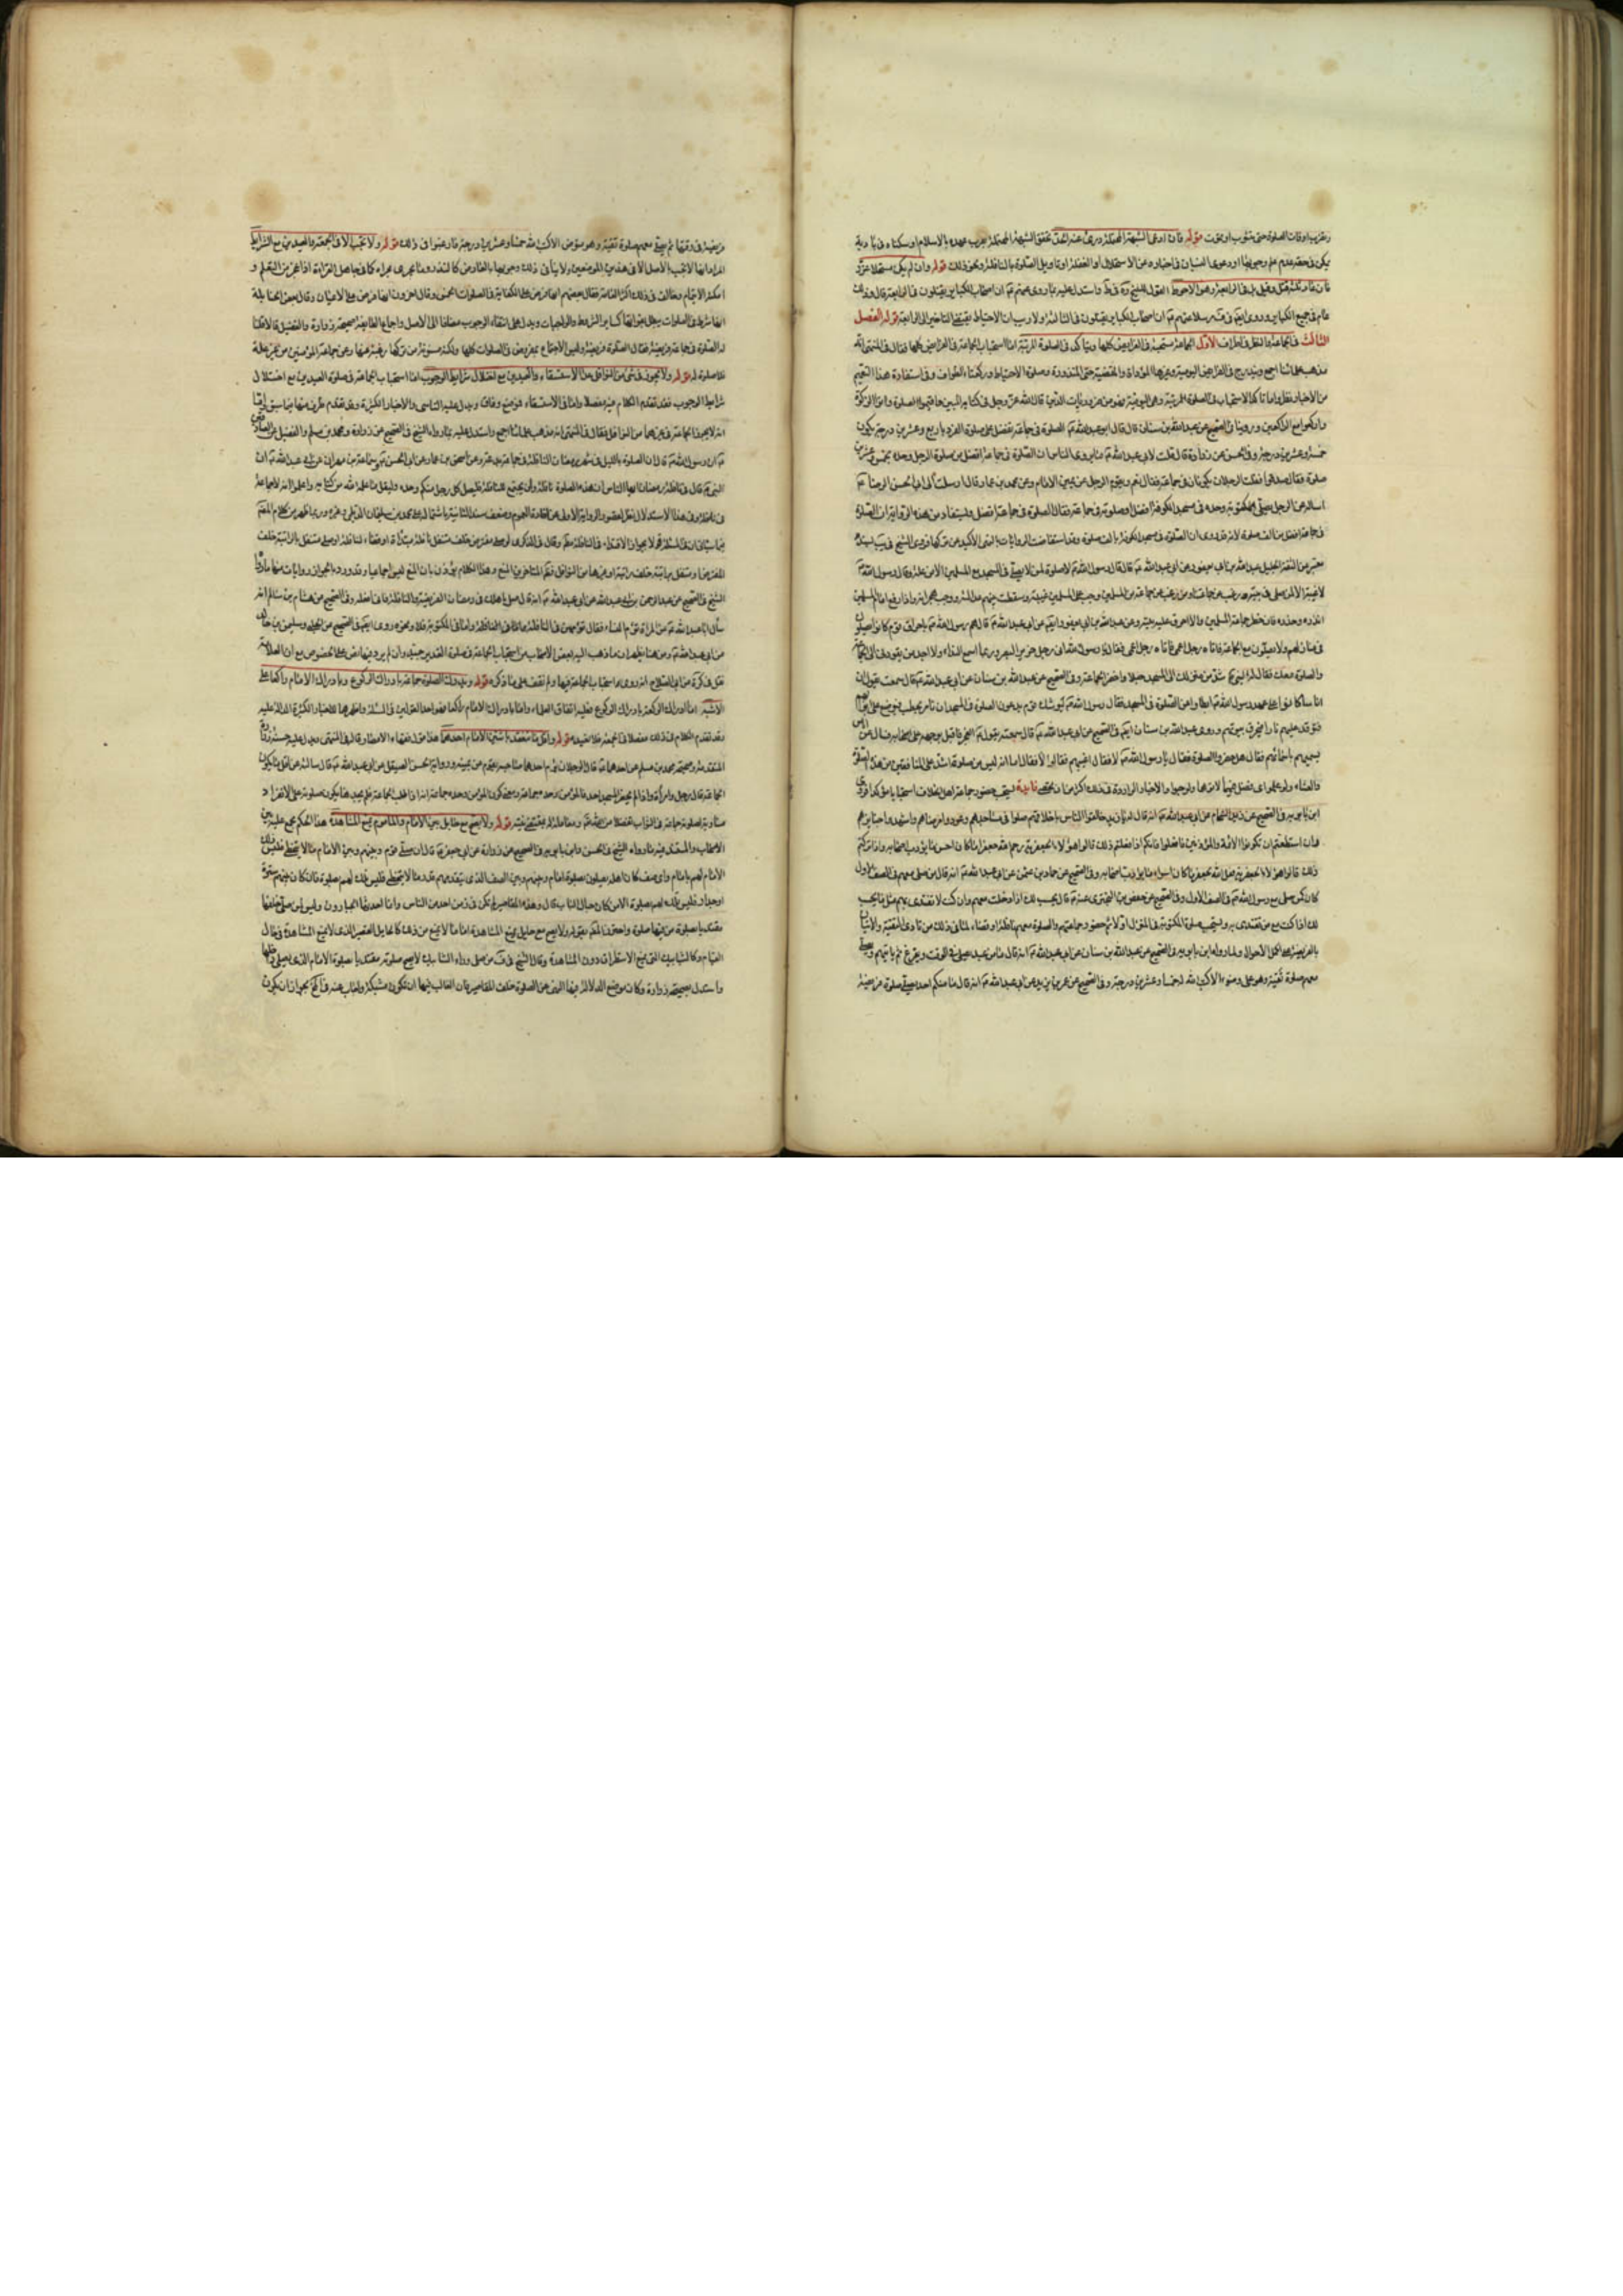 وغروب اوقات الصلوة حتى يتوب او يموت قوله فان ادعى الشبهة المحتملة درئ عنه الحد تتحقق الشبهة المحتملة بقرب عهده بالاسلام او سكناه في بادية
يمكن في حقه عدم علم وجوبها او دعوى النسيان في اخباره عن الاستحلال او الغفلة او تاويل الصلوة بالنافلة ونحو ذلك قوله وان لم يكن مستحلا عزر
فان عاد ثلثة قتل وقيل بل في الرابعة وهو الاحوط القول للشيخ ره في واستدل عليه بما روى عنهم ان اصحاب الكباير يقتلون في الرابعة قال وذلك
عام في جميع الكباير وروى ان اصحاب الكباير يقتلون في الثالثة ولا ريب ان الاحتياط يقتضي التاخير الى الرابعة قوله الفصل
الثالث في الجماعة والنظر في اطراف الاول الجماعة مستحبة في الفرائض كلها ويتاكد في الصلوة المرتبة اما استحباب الجماعة في الفرائض كلها فقال في المنتهى انه
مذهب علمائنا اجمع ويندرج في الفرائض اليومية وغيرها المؤداة والمقضية حتى المنذورة وصلوة الاحتياط وركعتا الطواف وفي استفادة هذا التعميم
من الاخبار نظر واما تاكد الاستحباب في الصلوة المرتبة وهي اليومية قال الله عز وجل في كتابه المبين واقيموا الصلوة واتوا الزكوة
واركعوا مع الراكعين وروينا في الصحيح عن عبدالله بن سنان قال قال ابو عبدالله الصلوة في جماعة تفضل على صلوة الفرد باربع وعشرين درجة تكون
خمسة وعشرين درجة وفي الحسن عن زرارة قال قلت لابي عبد الله ما يروى الناس ان الصلوة في جماعة افضل من صلوة الرجل وحده بخمس وعشرين
صلوة فقال صدقوا فقلت الرجلان يكونان في جماعة فقال نعم ويقوم الرجل عن يمين الامام وعن محمد بن عمارة قال ارسلت الى ابي الحسن الرضا
اساله عن الرجل يصلي المكتوبة وحده في مسجد الكوفة افضل او صلوته في جماعة فقال الصلوة في جماعة افضل ويستفاد من هذه الرواية ان الصلوة
في جماعة افضل من الف صلوة لانه قد روى ان الصلوة في مسجد الكوفة بالف صلوة وقد استفاضت الروايات بالنهي الاكيد عن تركها فروى الشيخ
عن الثقة الجليل عبدالله بن ابي يعفور عن ابي عبد الله قال قال رسول الله لا صلوة لمن لا يصلي في المسجد مع المسلمين الا من علة وقال رسول الله
لا غيبة الا لمن صلى في بيته ورغب عن جماعتنا ومن رغب عن جماعة المسلمين وجب على المسلمين غيبته وسقطت بينهم عدالته ووجب هجرانه واذا رفع الى امام المسلمين
انذره وحذره فان حضر جماعة المسلمين والا احرق عليه بيته وعن عبدالله بن ابي يعفور ايضا عن ابي عبد الله قال هم رسول الله باحراق قوم كانوا يصلون
في منازلهم ولا يصلون مع الجماعة فاتاه رجل اعمى فقال يا رسول الله انى رجل ضرير البصر وربما اسمع النداء ولا اجد من يقودنى الى الجماعة
والصلوة معك فقال له النبي شد من منزلك الى المسجد حبلا واحضر الجماعة وفي الصحيح عن عبدالله بن سنان عن ابي عبدالله قال سمعته يقول ان
اناسا كانوا على عهد رسول الله ابطاوا عن الصلوة في المسجد فقال رسول الله ليوشك قوم يدعون الصلوة في المسجد ان نامر بحطب فيوضع على ابوابهم
فتوقد عليهم نار فتحرق بيوتهم وروى عبدالله بن سنان ايضا في الصحيح عن ابي عبدالله قال سمعته يقول صلى الفجر فاقبل بوجهه على اصحابه فسال عن اناس
يسميهم باسمائهم فقال هل حضروا الصلوة فقالوا لا يا رسول الله فقال اغيب هم فقالوا لا فقال اما انه ليس من صلوة اشد على المنافقين من هذه الصلوة
والعشاء ولو علموا اى فضل فيهما لاتوهما ولو حبوا والاخبار الواردة في ذلك اكثر من ان تحصى فائدة يستحب حضور جماعة اهل الخلاف استحبابا مؤكدا فروى
ابن بابويه في الصحيح عن زيد الشحام عن ابي عبدالله انه قال يا زيد خالقوا الناس باخلاقهم صلوا في مساجدهم وعودوا مرضاهم واشهدوا جنايزهم
فان استطعتم ان تكونوا الائمة والمؤذنين فافعلوا فانكم اذا فعلتم ذلك قالوا هؤلاء الجعفرية رحم الله جعفرا ما كان احسن ما يؤدب اصحابه واذا تركتم
ذلك قالوا هؤلاء الجعفرية فعل الله بجعفر ما كان اسوء ما يؤدب اصحابه وفي الصحيح عن حماد بن عثمن عن ابي عبد الله انه قال من صلى معهم في الصف الاول
كان كمن صلى مع رسول الله في الصف الاول وفي الصحيح عن حفص بن البختري عنه قال يحسب لك اذا دخلت معهم وان كنت لا تقتدى بهم مثل ما يحسب
لك اذا كنت مع من تقتدى به ويستحب صلوة المكتوبة في المنزل اولا ثم حضور جماعتهم والصلوة معهم نافلة او قضاء لما في ذلك من تادى التقية والاتيان
بالفريضة على اكمل الاحوال ولما رواه ابن بابويه في الصحيح عن عبدالله بن سنان عن ابي عبدالله انه قال ما من عبد يصلي في الوقت ويفرغ ثم ياتيهم ويصلي
معهم صلوة تقية وهو على وضوء الا كتب الله له خمسا وعشرين درجة وفي الصحيح عن عمر بن يزيد عن ابي عبد الله انه قال ما منكم احد يصلي صلوة فريضة
فريضة في وقتها ثم يصلي معهم صلوة تقية وهو متوضئ الا كتب الله له خمسا وعشرين درجة فارغبوا في ذلك قوله ولا تجب الا في الجمعة والعيدين مع الشرايط
المراد انها لا تجب بالاصل الا في هذين الموضعين ولا ينافى ذلك وجوبها بالعارض كالنذر وما يجرى مجراه كما في جاهل القراءة اذا عجز عن التعلم و
امكنه الايتمام وخالف في ذلك اكثر العامة فقال بعضهم انها فرض على الكفاية في الصلوات الخمس وقال اخرون انها فرض على الاعيان وقال بعض الحنابلة
انها شرط في الصلوات يبطل بفواتها كساير الشروط والواجبات ويدل على انتفاء الوجوب مضافا الى الاصل واجماع الطايفة صحيحة زرارة والفضيل قالا قلنا
له الصلوة في جماعة فريضة فقال الصلوة فريضة وليس الاجتماع بمفروض في الصلوات كلها ولكنه سنة من تركها رغبة عنها وعن جماعة المؤمنين من غير علة
فلا صلوة له قوله ولا تجوز في شئ من النوافل عدا الاستسقاء والعيدين مع اختلال شرايط الوجوب اما استحباب الجماعة في صلوة العيدين مع اختلال
شرايط الوجوب فقد تقدم الكلام فيه مفصلا واما في الاستسقاء فموضع وفاق ويدل عليه التاسى والاخبار الكثيرة وقد تقدم طرف منها فيما سبق واما
انه لا تجوز الجماعة في غيرهما من النوافل فقال في المنتهى انه مذهب علمائنا اجمع واستدل عليه بما رواه الشيخ في الصحيح عن زرارة ومحمد بن مسلم والفضيل عن الصادقين
ان رسول الله قال ان الصلوة بالليل في شهر رمضان النافلة في جماعة بدعة وعن اسحق بن عمار عن ابي الحسن وسماعة بن مهران عن ابي عبدالله ان
النبي قال في نافلة رمضان ايها الناس ان هذه الصلوة نافلة ولن يجتمع للنافلة فليصل كل رجل منكم وحده وليقل ما علمه الله من كتابه واعلموا انه لا جماعة
في نافلة وفي هذا الاستدلال نظر لقصور الرواية الاولى عن افادة العموم وضعف سند الثانية باشتماله على محمد بن سليمان الديلمي وغيره وربما ظهر من كلام المصنف
فيما سياتي ان في المسئلة قولا بجواز الاقتداء في النافلة مطلقا وقال في الذكرى لو صلى مفترض خلف متنفل نافلة مبتداة او قضاء لنافلة او صلى متنفل بالراتبة خلف
المفترض او متنفل براتبة خلف راتبة او غيرها من النوافل فظاهر المتاخرين المنع وهذا الكلام يؤذن بان المنع ليس اجماعيا وقد ورد بالجواز روايات منها ما رواه
الشيخ في الصحيح عن عبدالرحمن بن ابى عبدالله عن ابي عبد الله انه قال صل باهلك في رمضان الفريضة والنافلة فانى افعله وفي الصحيح عن هشام بن سالم انه
سأل ابا عبدالله عن المراة تؤم النساء فقال تؤمهن في النافلة فاما في المكتوبة فلا ونحوه روى ايضا في الصحيح عن الحلبي وسليمن بن خالد
عن ابي عبدالله ومن هنا يظهر ان ما ذهب اليه بعض الاصحاب من استحباب الجماعة في صلوة الغدير جيد وان لم يرد فيها نص على الخصوص مع ان العلامة
نقل في كرة عن ابي الصلاح انه روى استحباب الجماعة فيها ولم نقف على ما ذكره قوله وتدرك الصلوة جماعة بادراك الركوع وبادراك الامام راكعا على
الاشبه اما ادراك الركعة بادراك الركوع فعليه اتفاق العلماء واما بادراك الامام راكعا فهو احد القولين في المسئلة واظهرهما للاخبار الكثيرة الدالة عليه
وقد تقدم الكلام في ذلك مفصلا في الجمعة فلا نعيده قوله واقل ما تنعقد باثنين الامام احدهما هذا قول فقهاء الامصار قاله في المنتهى ويدل عليه حسنة زرارة
المتقدمة وصحيحة محمد بن مسلم عن احدهما قال الرجلان يؤم احدهما صاحبه يقوم عن يمينه ورواية الحسن الصيقل عن ابي عبدالله قال سالته عن اقل ما تكون
الجماعة قال رجل وامراة واذا لم يحضر المسجد احد فالمؤمن وحده جماعة ومعنى كون المؤمن وحده جماعة انه اذا طلب الجماعة فلم يجدها تكون صلوته على الانفراد
مساوية لصلوته جماعة في الثواب تفضلا من الله ومعاملة له بمقتضى نيته قوله ولا تصح مع حايل بين الامام والماموم يمنع المشاهدة هذا الحكم مجمع عليه بين
الاصحاب والمستند فيه ما رواه الشيخ في الحسن وابن بابويه في الصحيح عن زرارة عن ابي جعفر قال ان صلى قوم وبينهم وبين الامام ما لا يتخطى فليس ذلك
الامام لهم بامام واى صف كان اهله يصلون بصلوة امام وبينهم وبين الصف الذى يتقدمهم قدر ما لا يتخطى فليس تلك لهم بصلوة فان كان بينهم سترة
او جدار فليس تلك لهم بصلوة الا من كان حيال الباب قال وهذه المقاصير لم تكن في زمن احد من الناس وانما احدثها الجبارون وليس لمن صلى خلفها
مقتديا بصلوة من فيها صلوة واحترز المصنف بقوله ولا تصح مع حايل يمنع المشاهدة عما لا يمنع من ذلك كالحايل القصير الذى لا يمنع المشاهدة في حال
القيام وكالشبابيك التى تمنع الاستطراق دون المشاهدة وقال الشيخ في ف من صلى وراء الشبابيك لا تصح صلوته مقتديا بصلوة الامام الذى يصلي داخلها
واستدل بصحيحة زرارة وكان موضع الدلالة فيها النهى عن الصلوة خلف المقاصير فان الغالب فيها ان تكون مشبكة واجاب عنه في بجواز ان تكون